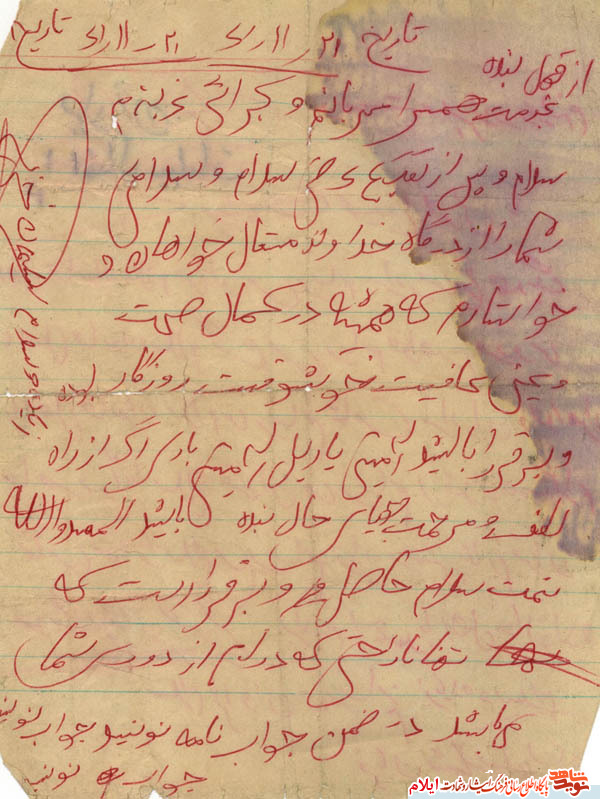 تاریخ ۲۱ ر ۱۱ ر ۶۱ ۲۱ ر ۱۱ ر ۶۱ تاریخ
از قول بنده
بخدمت همسر مهربانم و گرامی عزیزم
سلام و پس از تقدیم عرض سلام و سلامی
شما را از درگاه خداوند متعال خواهان و
خواستارم که همیشه در کمال صحت
و عین عافیت خوش وقت روزگار بوده
و برقرار باشید آمین یا رب آمین باری اگر از راه
لطف و مرحمت جویای حال بنده باشید الحمدوالله
نعمت سلام حاصل و برقرار است که
تنها ناراحتی که دارم از دوری شما
می باشد در ضمن جواب نامه نونید جواب نونید
جواب نونید
نوید شاهد
پایگاه اطلاع رسانی فرهنگ ایثار و شهادت ایلام